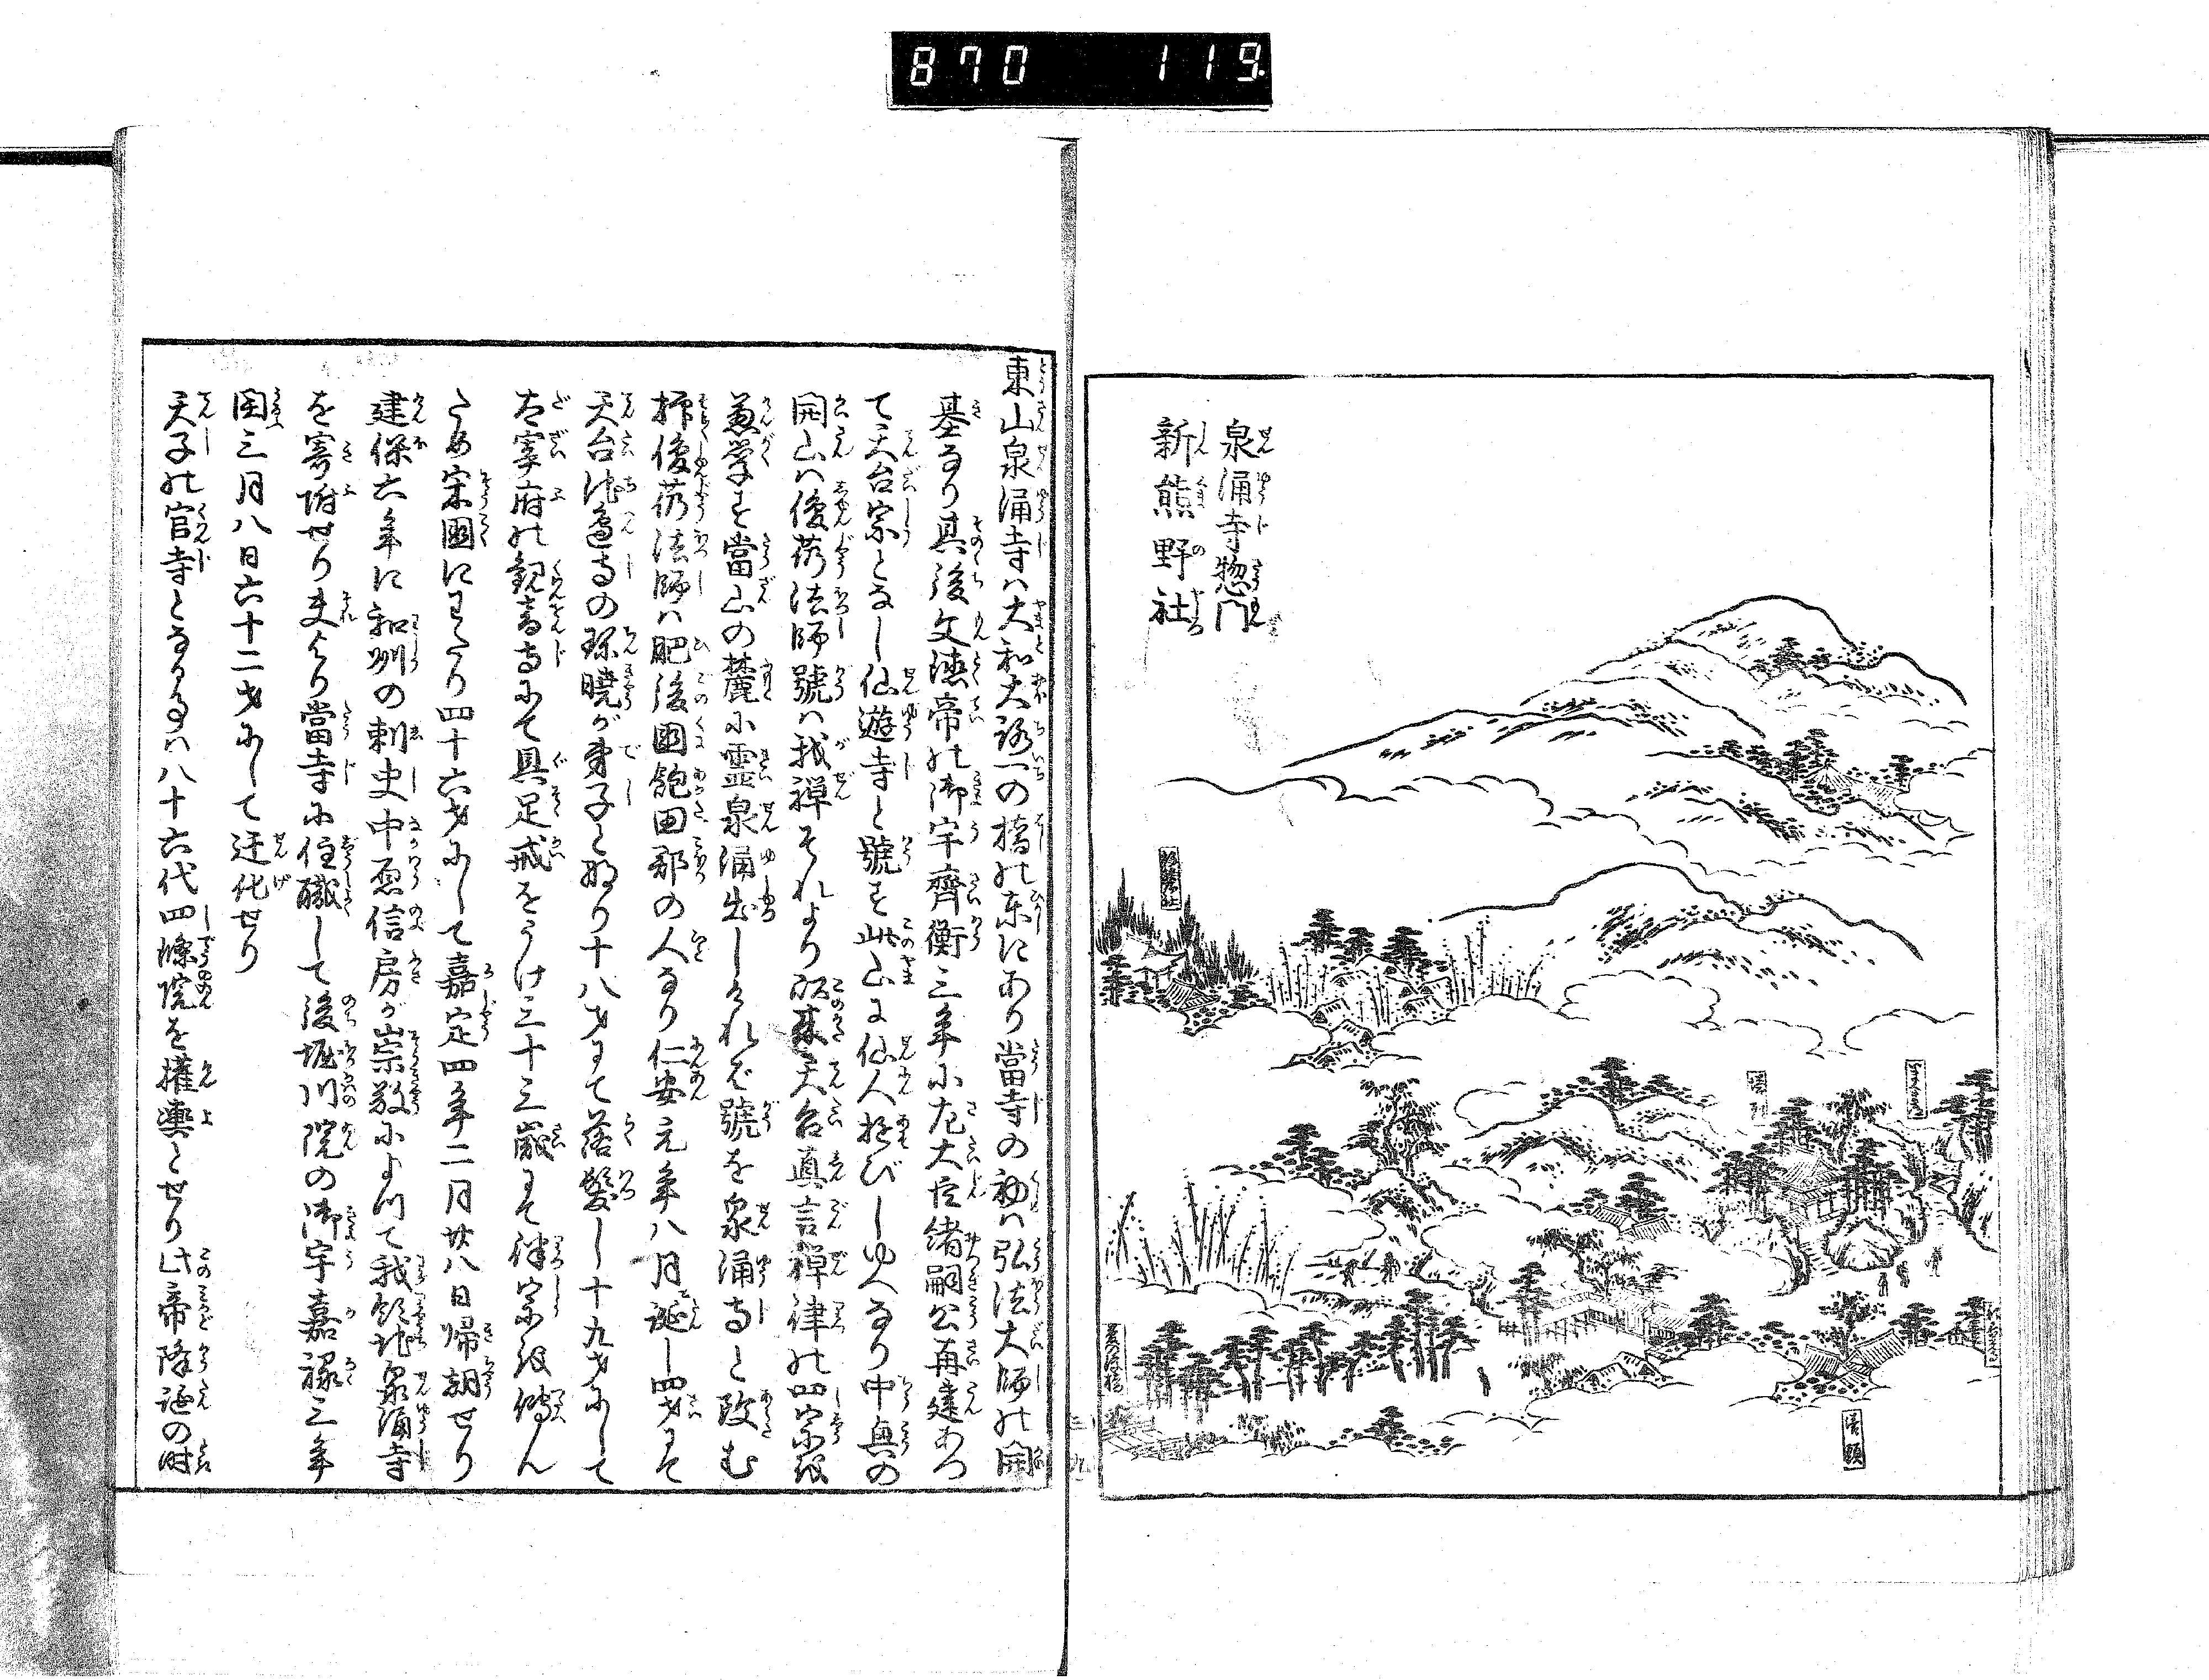 870 119
泉涌寺惣門
新熊野社
塔頭
東山泉涌寺ハ大和大路一の橋の東にあり當寺の初ハ弘法大師の開
基なり其後文徳帝の御宇齊衡三年に左大臣緒嗣公再建あつ
て天台宗となし仙遊寺と號す此山に仙人遊びしゆへなり中興の
開山ハ俊芿法師號ハ我禅それより天台真言禅律の四宗を
兼学す當山の麓に霊泉涌出しけれバ號を泉涌寺と改む
抑俊芿法師ハ肥後國飽田郡の人なり仁安元年八月誕し四才にて
天台池邉寺の珎暁が弟子と成り十八才にて落髪し十九才にして
太宰府の観音寺にて具足戒をうけ三十三歳にて律宗を傳ん
ため宋國にわたり四十六才にして嘉定四年二月廿八日帰朝せり
建保六年に和州の刺史中原信房が崇敬によつて我領地泉涌寺
を寄附せり夫より當寺に住職して後堀川院の御宇嘉禄三年
閏三月八日六十二才にして迁化せり
天子の官寺となる事ハ八十六代四條院を權輿とせり此帝降誕の時